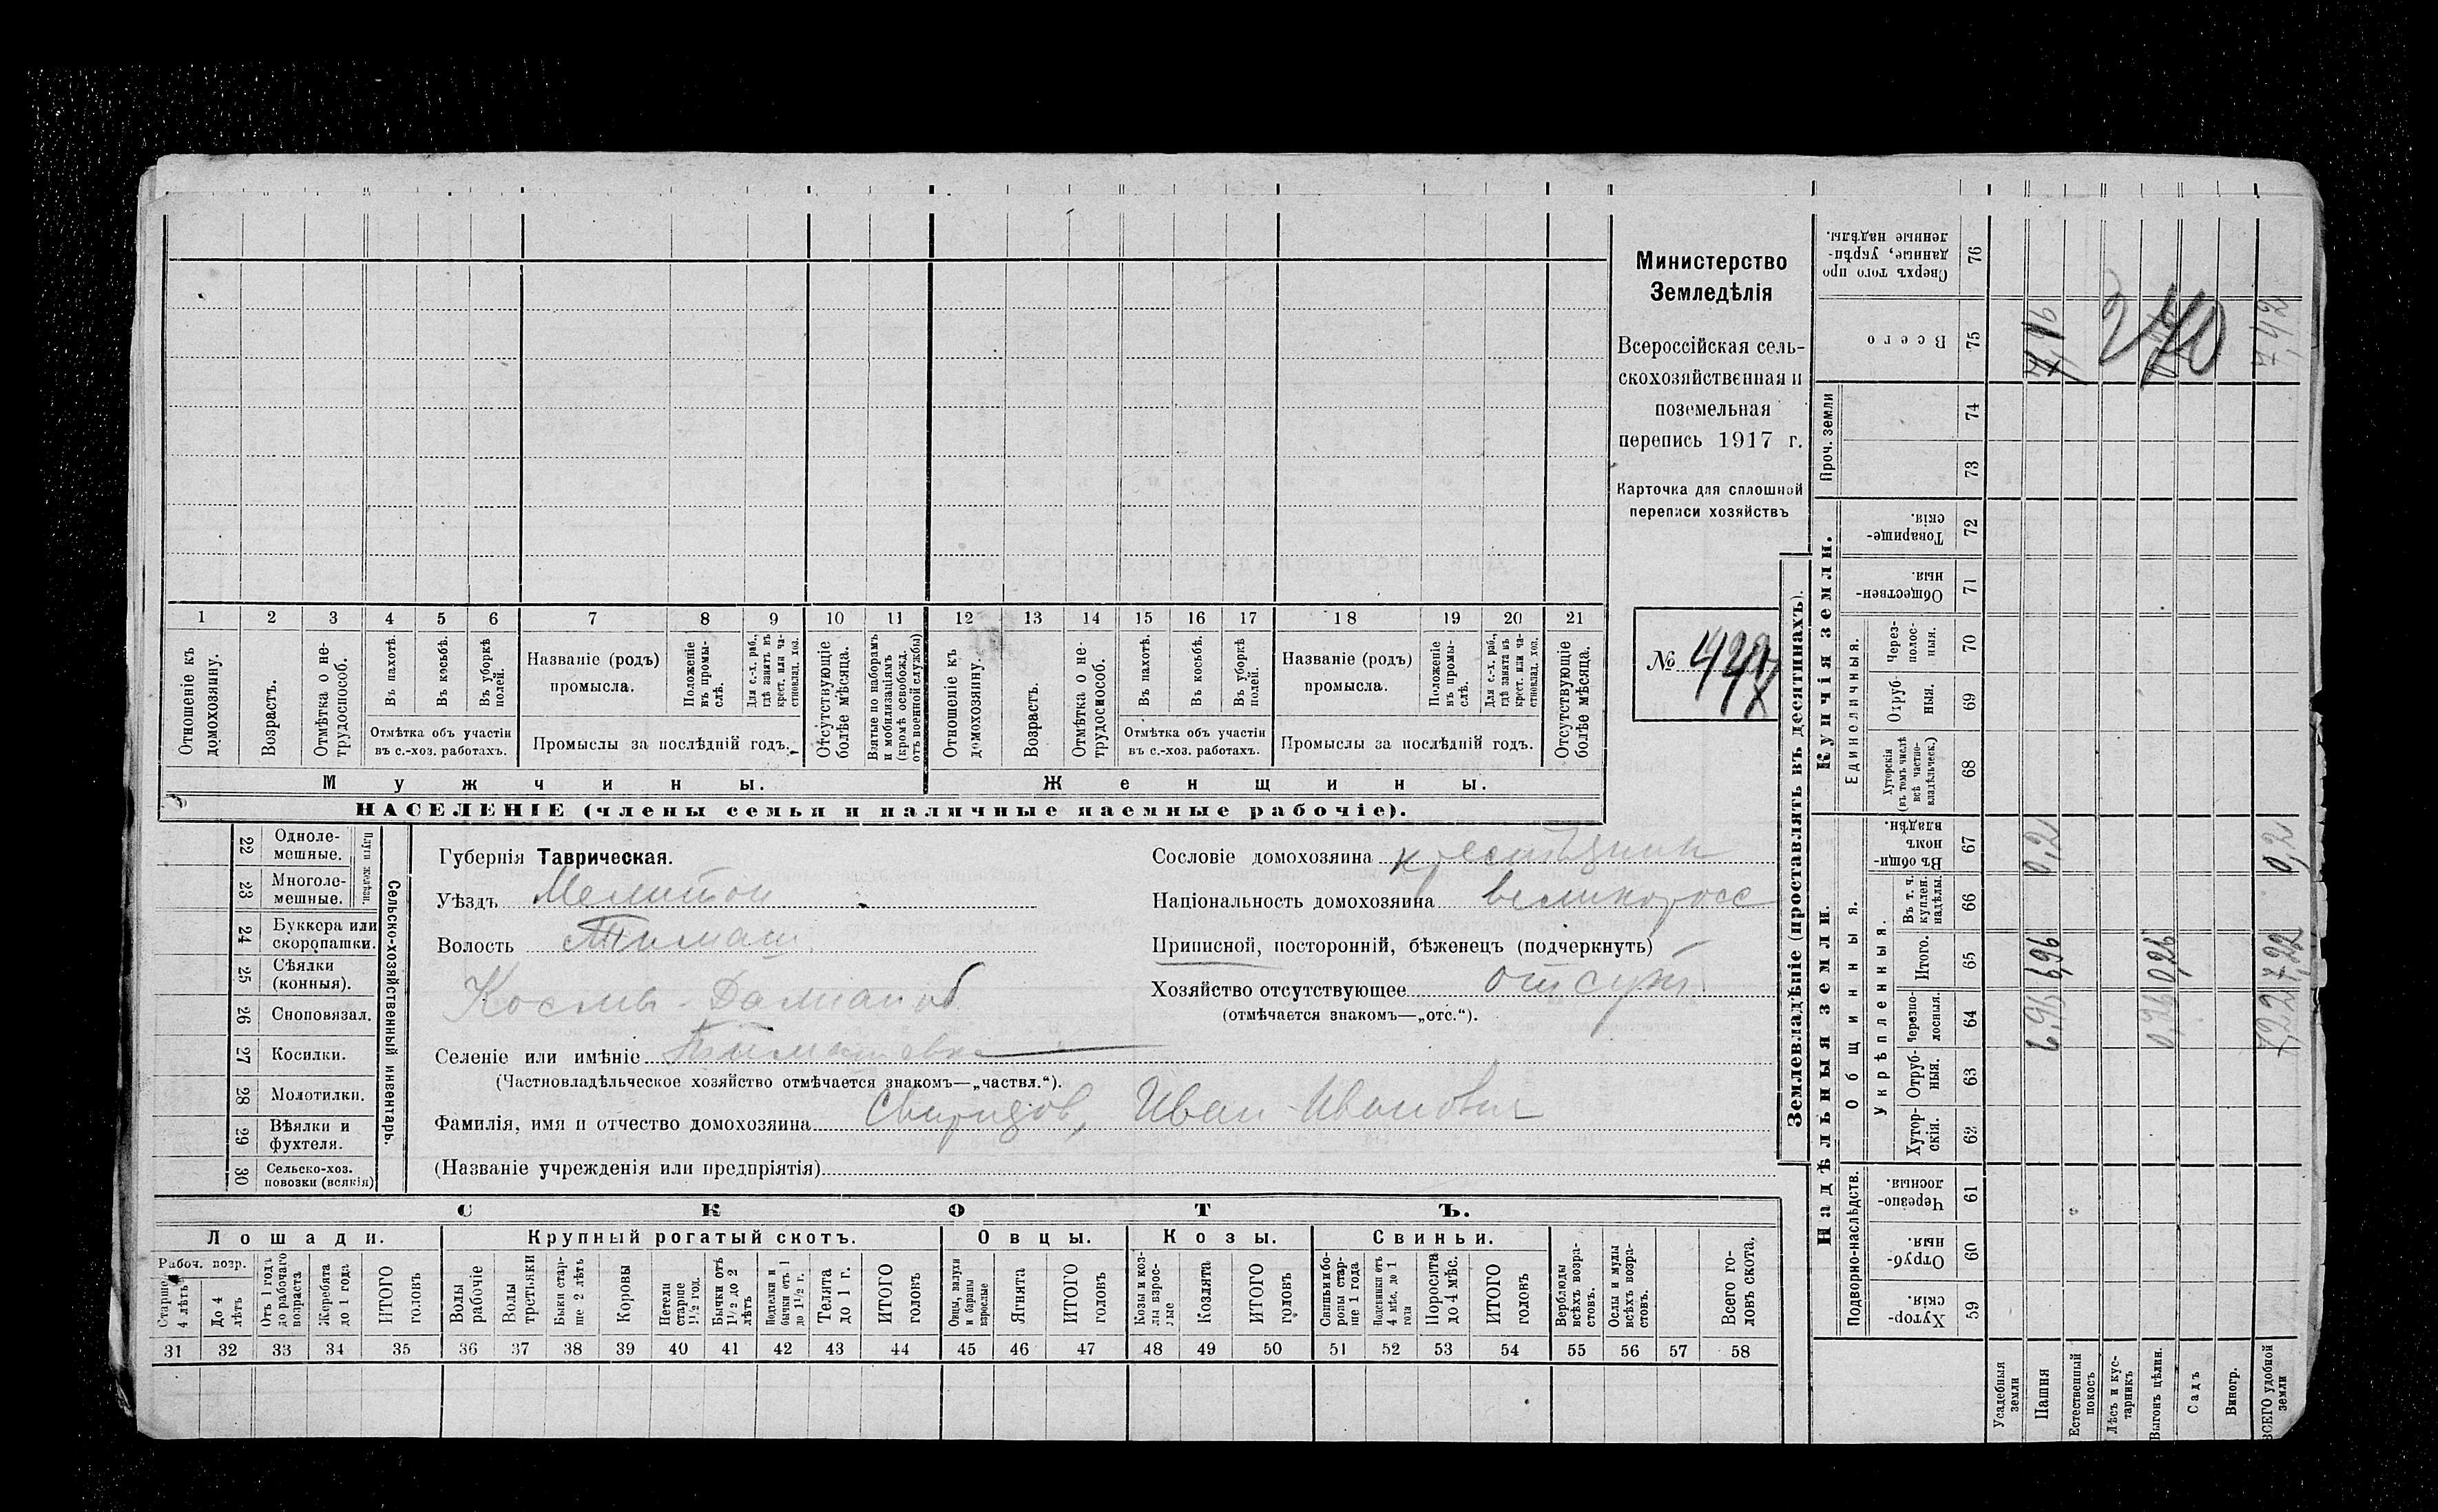 Министерство
Земледѣлія
Всероссійская сель-
скохозяйственная и
поземельная
перепись 1917 г.
Карточка для сплошной
переписи хозяйствъ
№
1 2 3 4 5 6 7 8 9 10 11 12 13 14 15 16 17 18 19 20 21
Отношеніе къ домохозяину.
Возрастъ.
Отмѣтка о не-трудоспособ.
Въ пахотѣ.
Въ косьбѣ.
Въ уборкѣ полей.
Названіе (родъ)
промысла.
Положеніе въ промы-слѣ.
Для с.-х. раб., гдѣ занятъ въ крест. или ча-стновлад. хоз.
Отсутствующіе болѣе мѣсяца.
Взятые по наборамъ и мобилизаціямъ (кромѣ освобожд. отъ военной службы)
Отношеніе къ домохозяину.
Возрастъ.
Отмѣтка о не-трудоспособ.
Въ пахотѣ.
Въ косьбѣ.
Въ уборкѣ полей.
Названіе (родъ)
промысла.
Положеніе въ промы-слѣ.
Для с.-х. раб., гдѣ занята въ крест. или ча-стновлад. хоз.
Отсутствующіе болѣе мѣсяца.
Отмѣтка объ участіи
въ с.-хоз. работахъ.
Промыслы за послѣдній годъ.
Отмѣтка объ участіи
въ с.-хоз. работахъ.
Промыслы за послѣдній годъ.
Мужчины.
Женщины.
НАСЕЛЕНІЕ (члены семьи и наличные наемные рабочіе).
22 Одноле-мешные.
23 Многоле-мешные.
Плуги желѣзн.
24 Буккера или скоропашки.
25 Сѣялки (конныя).
26 Сноповязал.
27 Косилки.
28 Молотилки.
29 Вѣялки и фухтеля.
30 Сельско-хоз. повозки (всякія)
Сельско-хозяйственный инвентарь.
Губернія Таврическая.
Уѣздъ Мелитоп
Волость Тимаш
Космо-Дамианов
Селеніе или имѣніе Тимашевка
(Частновладѣльческое хозяйство отмѣчается знакомъ—„частвл.“).
Фамилія, имя и отчество домохозяина Свиридов, Иван Иванович
(Названіе учрежденія или предпріятія)
Сословіе домохозяина крестьянин
Національность домохозяина великоросс
Приписной, посторонній, бѣженецъ (подчеркнуть)
Хозяйство отсутствующее отсут
(отмѣчается знакомъ—„отс.“).
СКОТЪ.
Лошади.
Крупный рогатый скотъ.
Овцы.
Козы.
Свиньи.
Рабоч. возр.
Старше 4 лѣтъ
До 4 лѣтъ
Отъ 1 года до рабочаго возраста
Жеребята до 1 года
ИТОГО головъ
Волы рабочіе
Волы третьяки
Быки стар-ше 2 лѣтъ
Коровы
Нетели старше 1½ год.
Бычки отъ 1½ до 2 лѣтъ
Подтелки и бычки отъ 1 до 1½ г.
Телята до 1 г.
ИТОГО головъ
Овцы, валухи и бараны взрослые
Ягнята
ИТОГО головъ
Козы и коз-лы взрос-лые
Козлята
ИТОГО головъ
Свиньи и бо-ровы стар-ше 1 года
Подсвинки отъ 4 мѣс. до 1 года
Поросята до 4 мѣс.
ИТОГО головъ
Верблюды всѣхъ возра-стовъ.
Ослы и мулы всѣхъ возра-стовъ.
Всего го-ловъ скота.
31 32 33 34 35 36 37 38 39 40 41 42 43 44 45 46 47 48 49 50 51 52 53 54 55 56 57 58
Землевладѣніе (проставлять въ десятинахъ).
Надѣльныя земли.
Купчія земли.
Проч. земли
Подворно-наслѣдств.
Общинныя.
Укрѣпленныя.
Единоличныя.
76 Сверхъ того про-данные, укрѣп-ленные надѣлы.
75 Всего
74
73
72 Товарище-скія.
71 Обществен-ныя.
70 Через-полос-ныя.
69 Отруб-ныя.
68 Хуторскія (въ томъ числѣ всѣ частно-владѣльческ.)
67 Въ общи-номъ владѣн.
66 Въ т. ч. куплен. надѣлы.
65 Итого.
64 Черезпо-лосныя.
63 Отруб-ныя.
62 Хутор-скія.
61 Черезпо-лосныя.
60 Отруб-ныя.
59 Хутор-скія.
Усадебныя земли
Пашня
Естественный покосъ
Лѣсъ и кус-тарникъ
Выгонъ цѣлин.
Садъ
Виногр.
ВСЕГО удобной земли
270
7,16
7,42
0,2
0,2
6,96
0,26
7,22
6,96
0,26
7,22